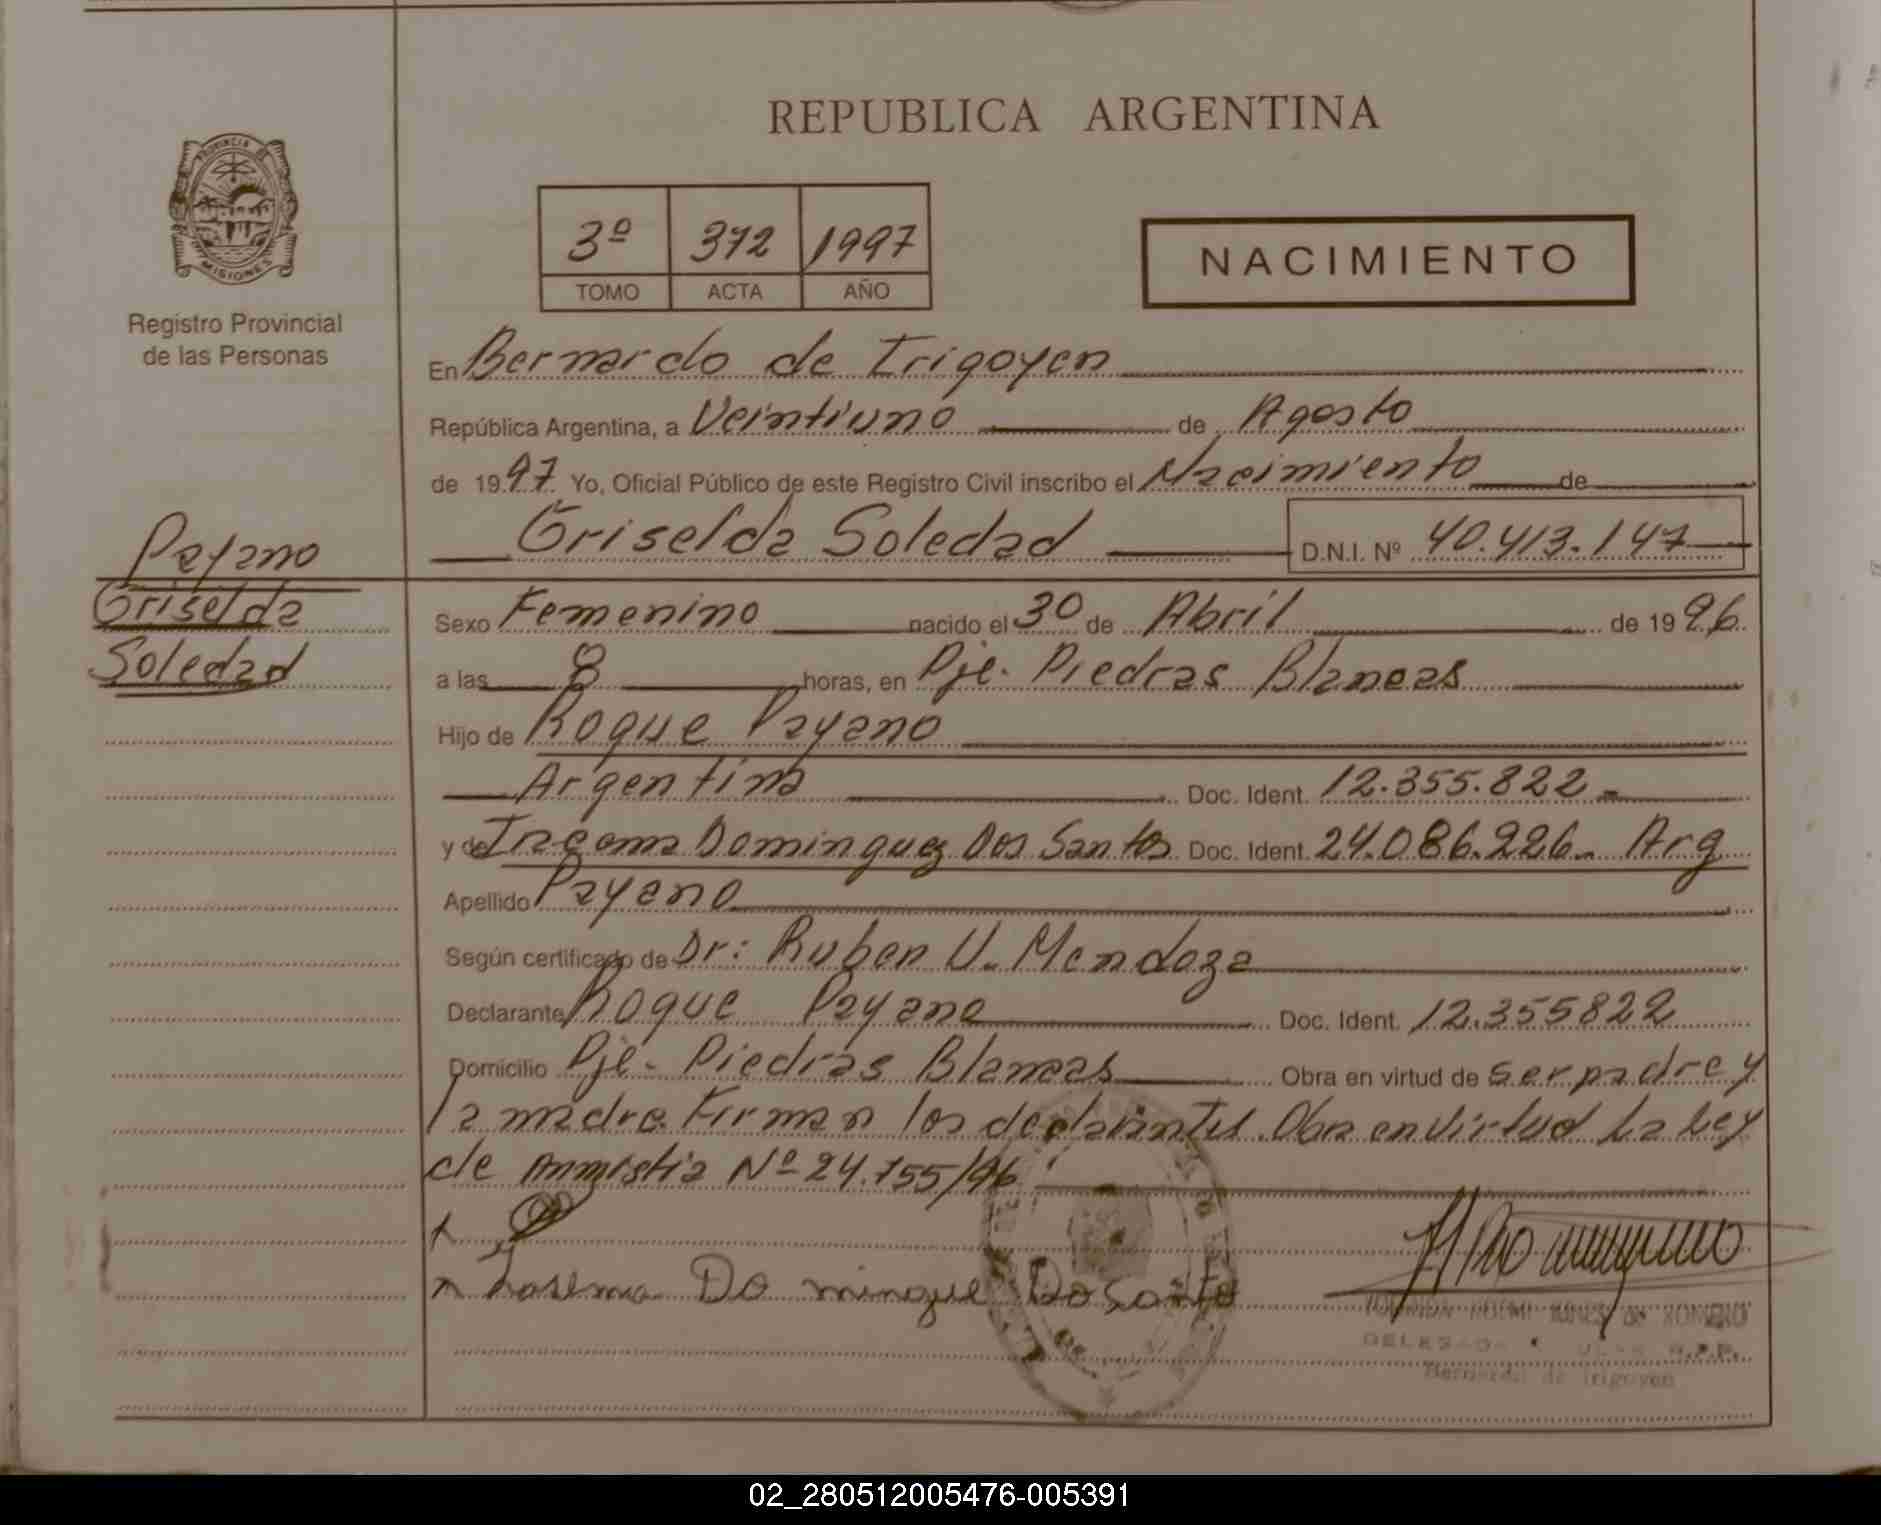 REPUBLICA ARGENTINA
PROVINCIA DE
MISIONES
Registro Provincial
de las Personas
3º 372 1997
TOMO ACTA AÑO
NACIMIENTO
En Bernardo de Irigoyen
República Argentina, a Veintiuno de Agosto
de 1997 Yo, Oficial Público de este Registro Civil inscribo el Nacimiento de
Griselda Soledad D.N.I. Nº 40.413.147
Payano
Griselda
Soledad
Sexo Femenino nacido el 30 de Abril de 1996
a las 8 horas, en Pje. Piedras Blancas
Hijo de Roque Payano
Argentina Doc. Ident. 12.355.822
y de Dominguez Dos Santos Doc. Ident. 24.086.226 Arg
Apellido Payano
Según certificado de Dr: Ruben U. Mendoza
Declarante Roque Payano Doc. Ident. 12.355822
Domicilio Pje. Piedras Blancas Obra en virtud de ser padre y
la madre. Firman los declarantes. Obra en virtud La Ley
de Anmistia Nº 24.755/96
Do mingue Do Santo
Bernardo de Irigoyen
02_280512005476-005391